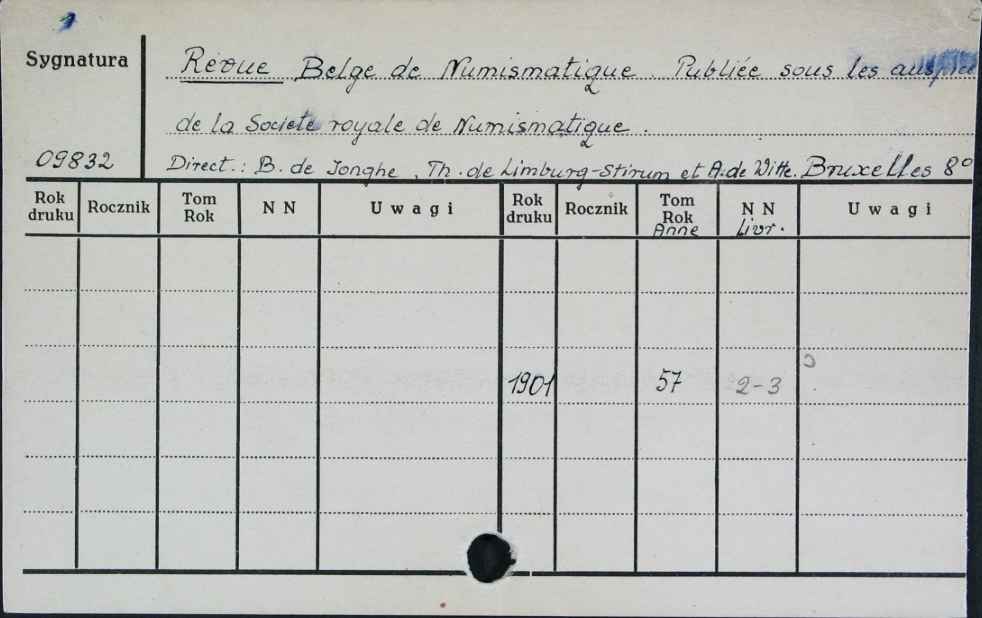 Sygnatura
Revue Belge de Numismatique. Publiée sous les
de la Societe royale de Numismatique.
09832
Direct.: B. de Jonghe, Th. de Limburg-Stirum et A. de Witte. Bruxelles 8°
Rok druku Rocznik Tom Rok NN Uwagi Rok druku Rocznik Tom Rok Anne NN Livr. Uwagi
1901 57 2-3